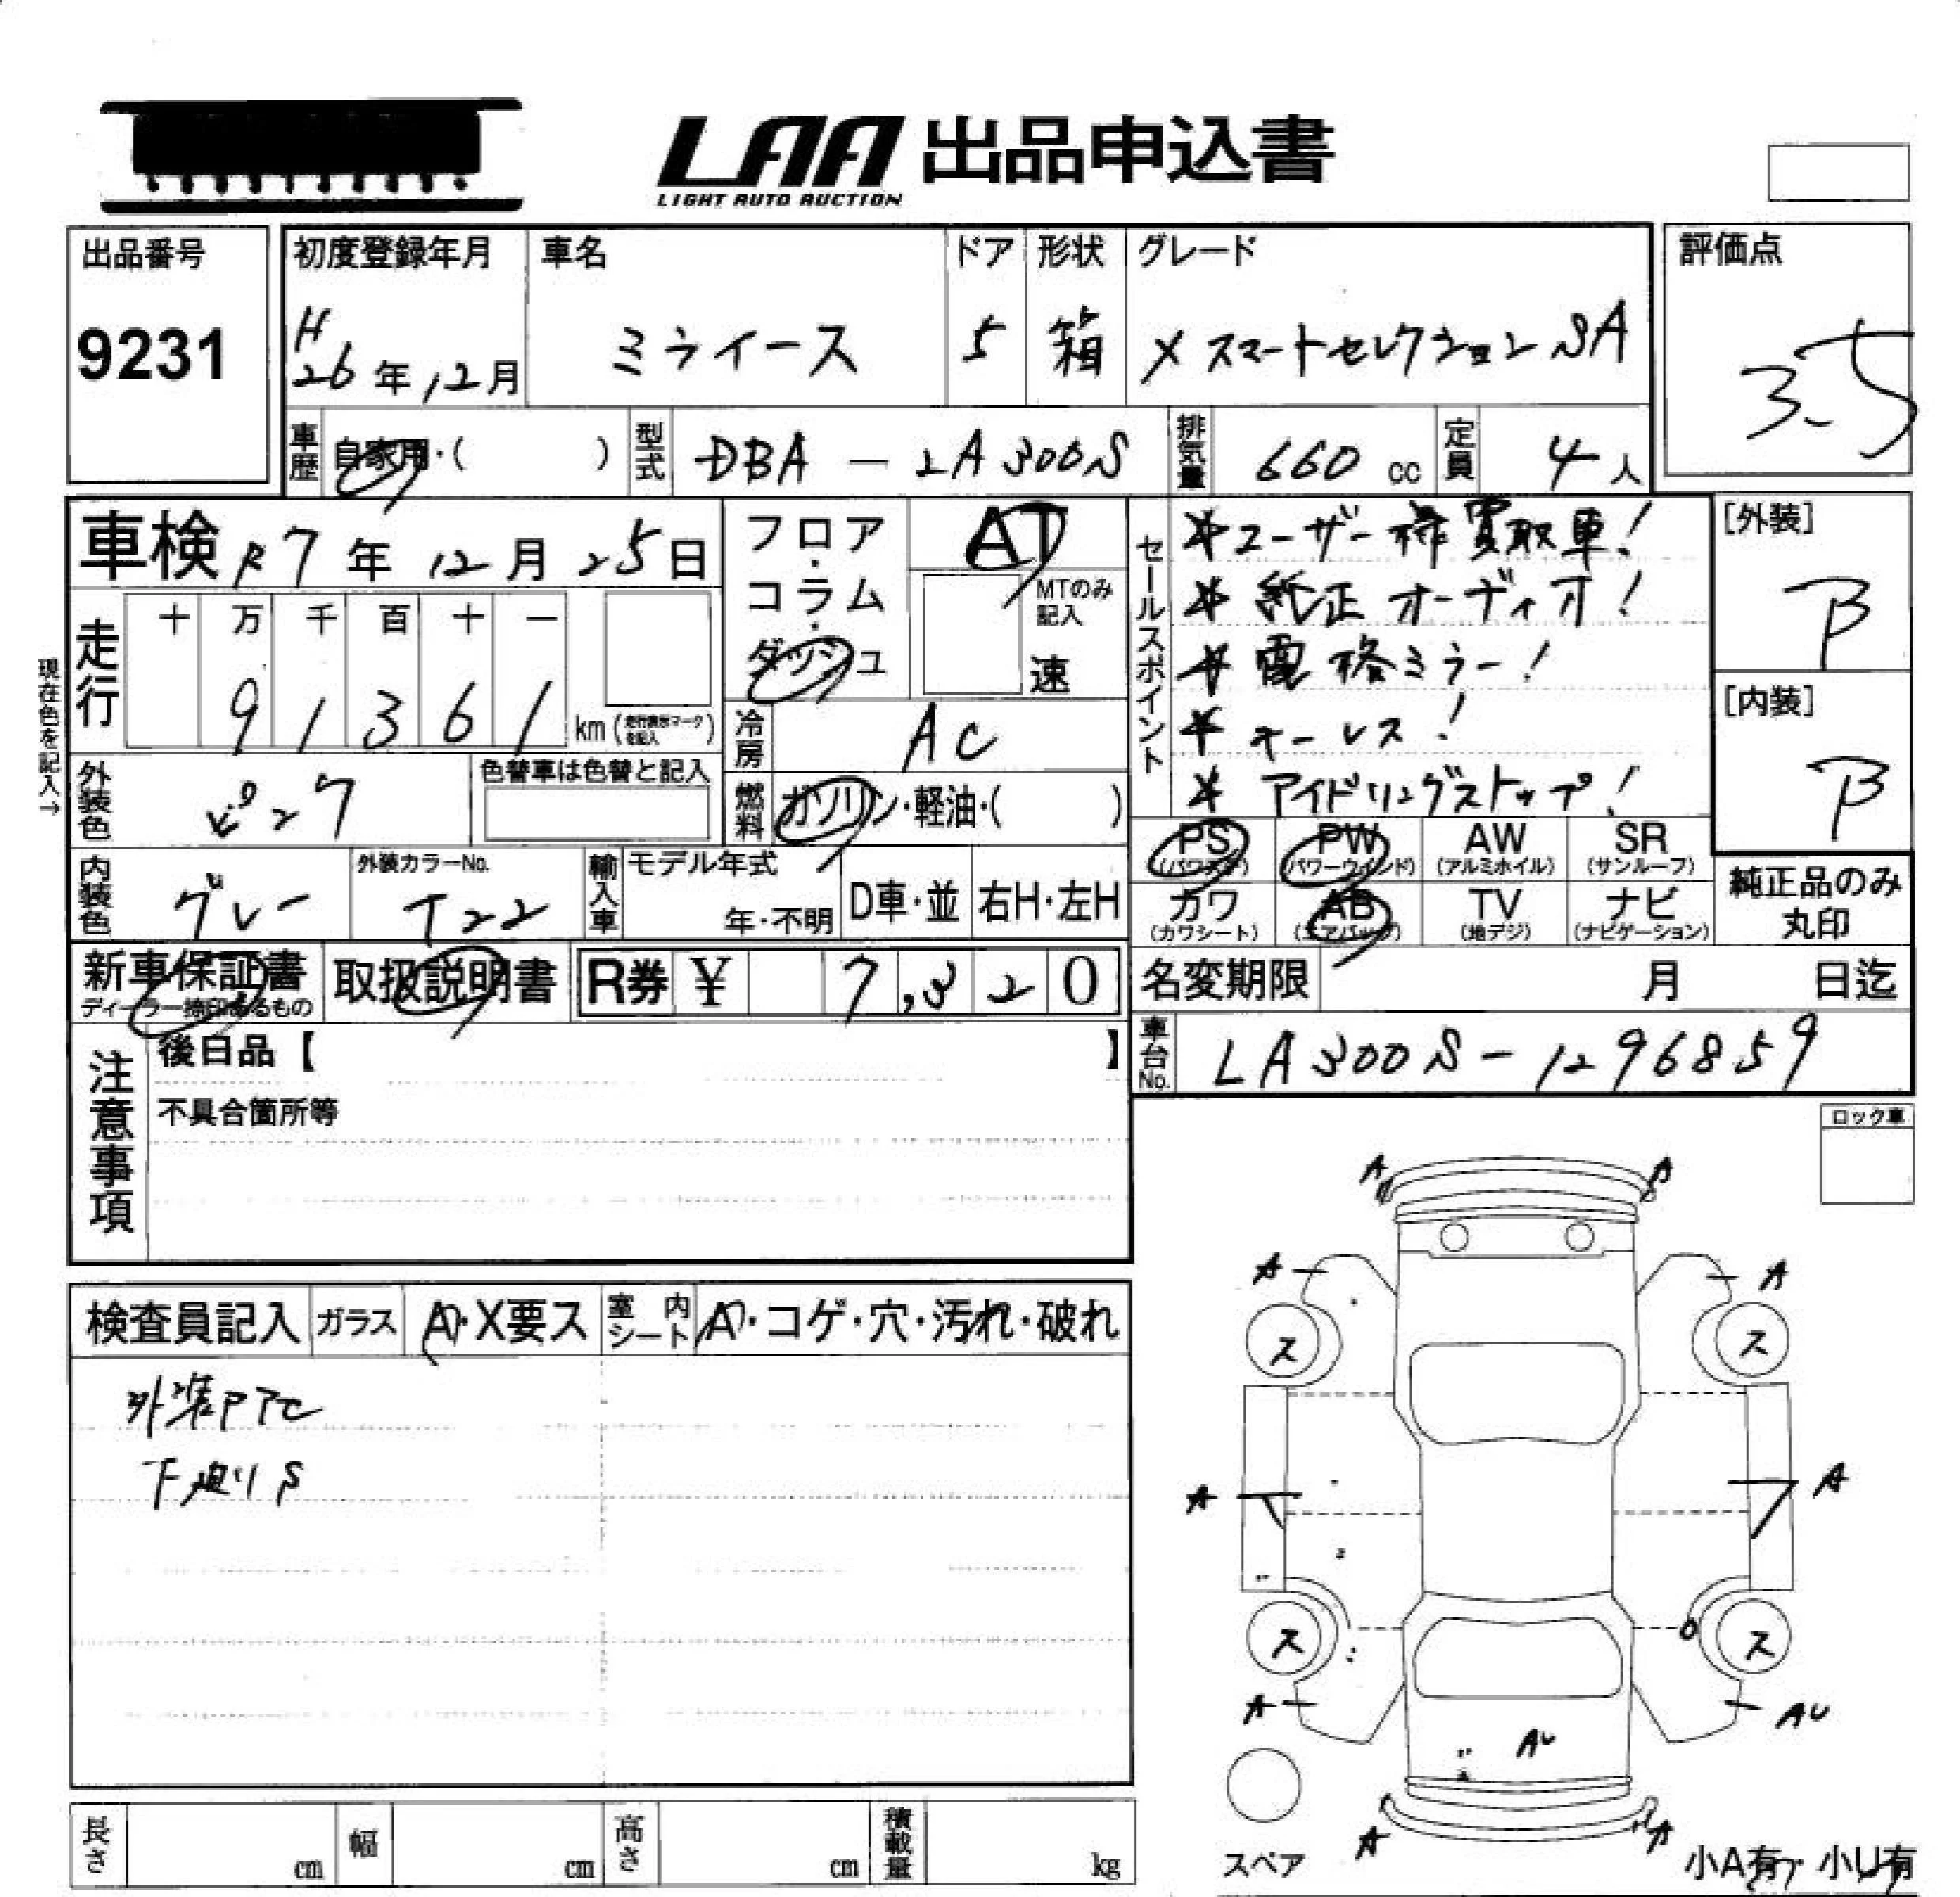 LAA 出品申込書
LIGHT AUTO AUCTION
出品番号
9231
初度登録年月
H
26年12月
車名
ミライース
ドア
5
形状
箱
グレード
X スマートセレクションSA
評価点
3.5
車歴
自家用・( )
型式
DBA-LA300S
排気量
660 cc
定員
4人
車検 R7年12月25日
現在色を記入→
走行
十 万 千 百 十 一
9 1 3 6 1
km (走行表示マークを記入)
フロア・コラム・ダッシュ
AT
MTのみ記入
速
冷房
AC
燃料
ガソリン・軽油・( )
外装色
ピンク
色替車は色替と記入
内装色
グレー
外装カラーNo.
T22
輸入車
モデル年式
年・不明
D車・並
右H・左H
セールスポイント
*ユーザー様買取車!
*純正オーディオ!
*電格ミラー!
*キーレス!
*アイドリングストップ!
[外装]
B
[内装]
B
PS (パワステ)
PW (パワーウィンド)
AW (アルミホイル)
SR (サンルーフ)
カワ (カワシート)
AB (エアバッグ)
TV (地デジ)
ナビ (ナビゲーション)
純正品のみ
丸印
新車保証書
ディーラー捺印あるもの
取扱説明書
R券 ¥ 7,320
名変期限 月 日迄
車台No.
LA300S-1296859
注意事項
後日品【 】
不具合箇所等
ロック車
検査員記入
ガラス
A・X要ス
室内シート
A・コゲ・穴・汚れ・破れ
外装PTC
下廻りS
A A
A A
ス ス
A A
ス ス
A AU
AU
A A
スペア
小A有・小U有
長さ cm
幅 cm
高さ cm
積載量 kg